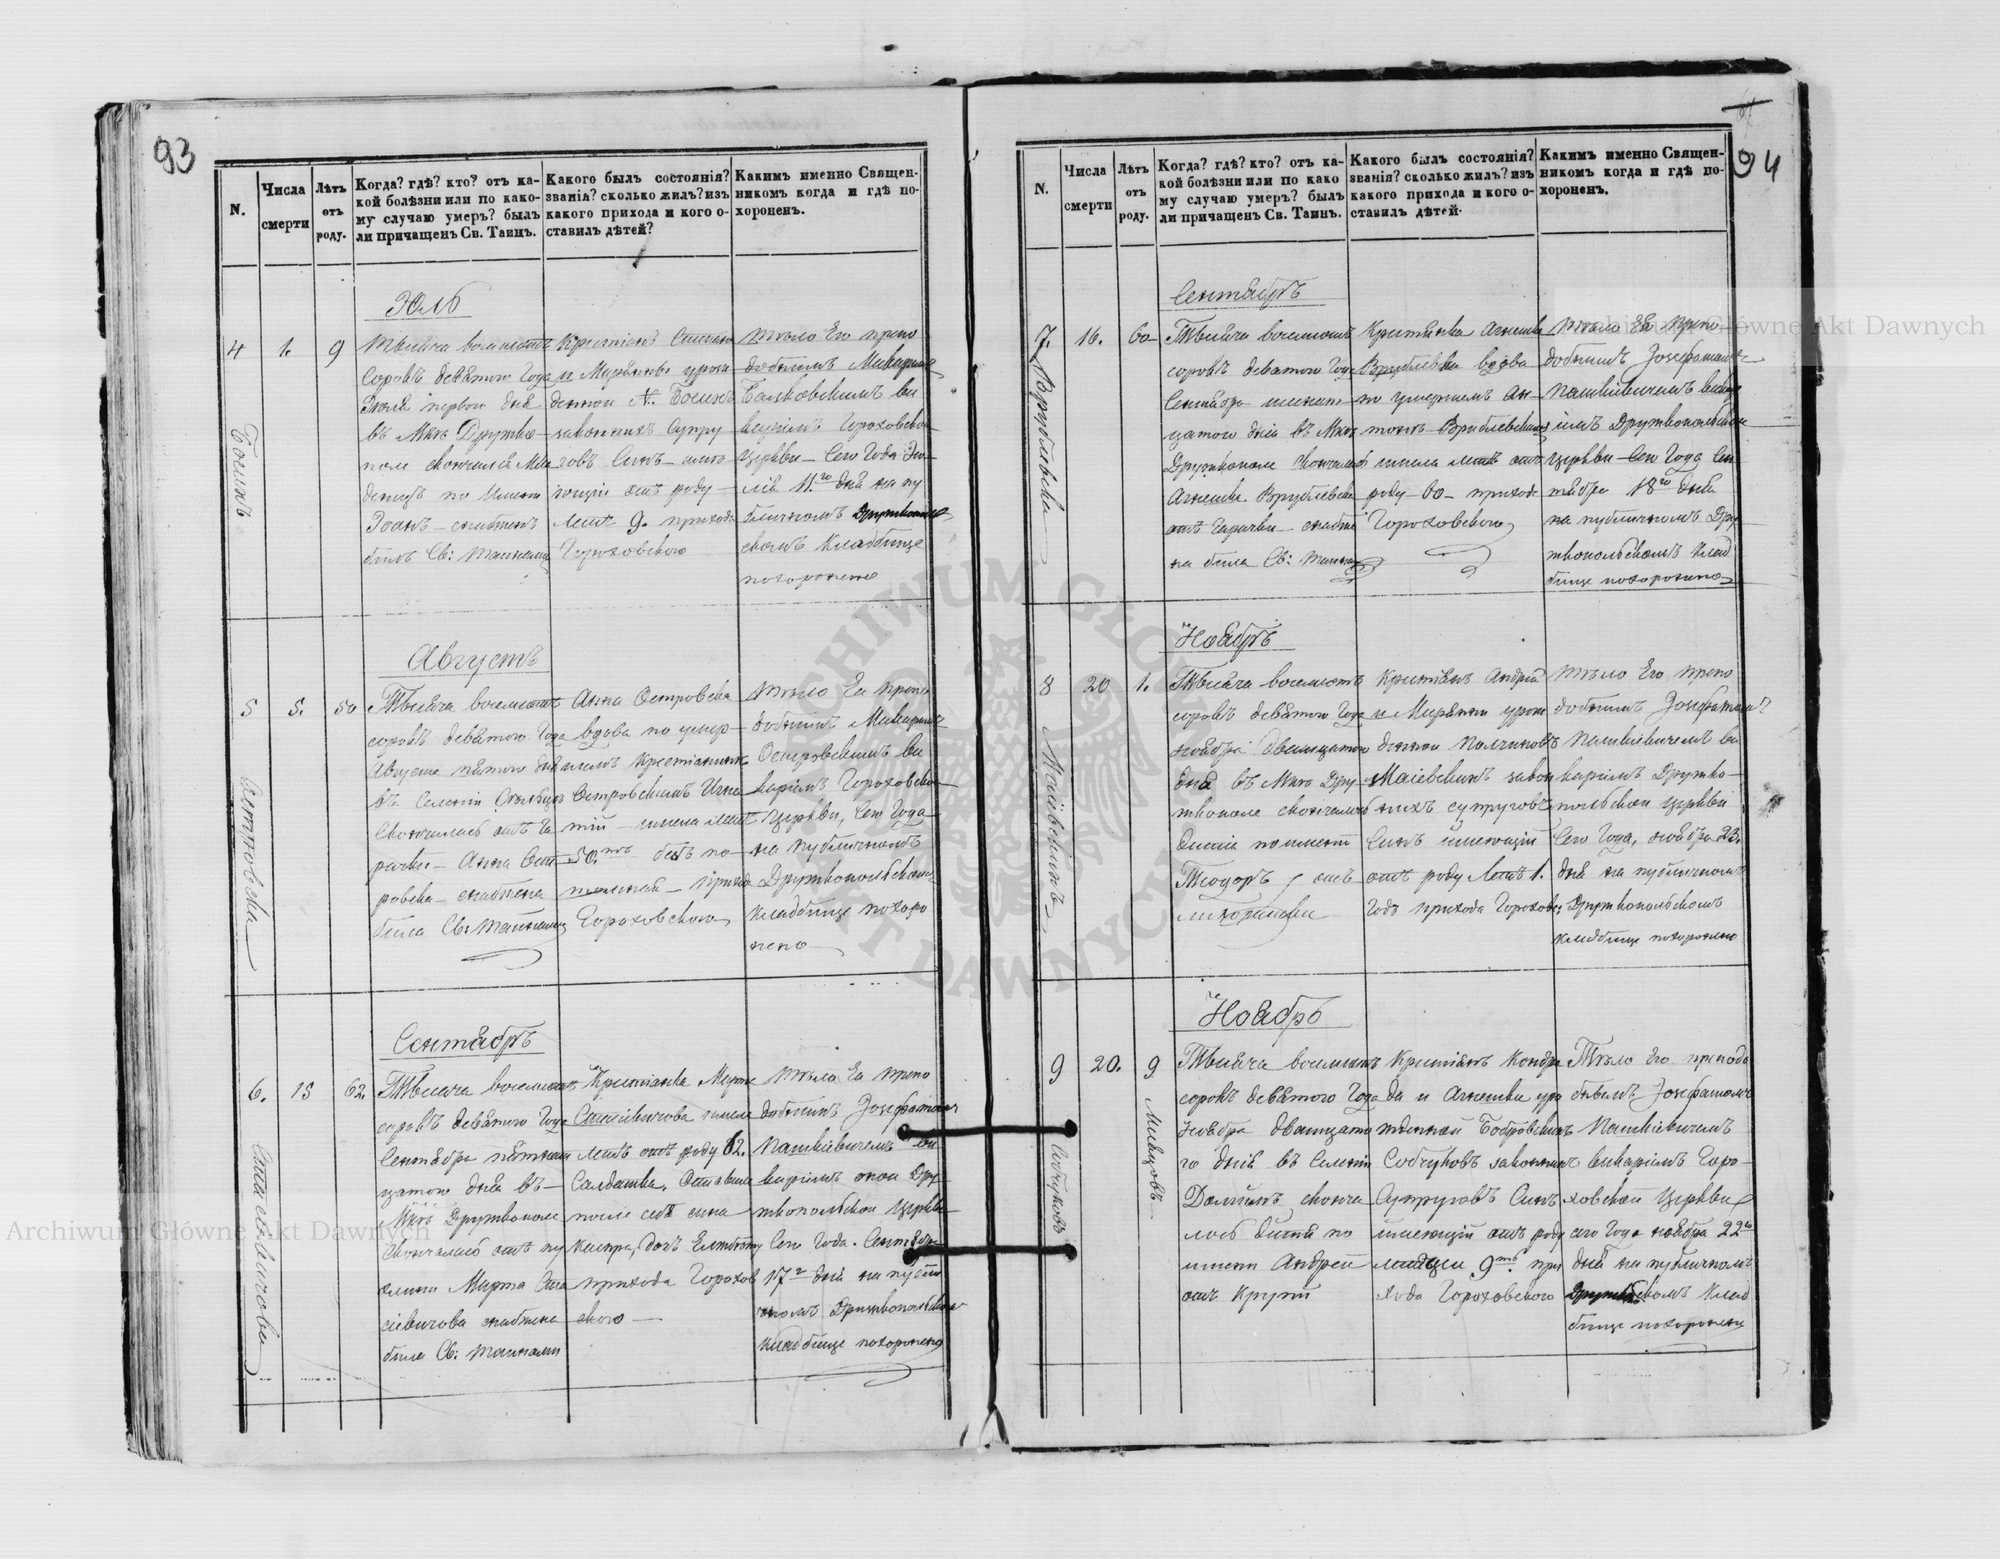 93
N.
Числа смерти
Лѣтъ отъ роду.
Когда? гдѣ? кто? отъ ка-
кой болѣзни или по како-
му случаю умеръ? былъ
ли причащенъ Св. Таинъ.
Какого былъ состоянія?
званія? сколько жилъ? изъ
какого прихода и кого о-
ставилъ дѣтей?
Какимъ именно Священ-
никомъ когда и гдѣ по-
хороненъ.
Юль
4
1.
9
Тысяча восемсотъ
сорокъ девятого Года
Іюля первои дня
въ Мкѣ Дружко-
поле скончался Мла
денецъ по имени
Іоанъ - снабтенъ
билъ Св: Таинами
и Марьяны урож
денной N.
законнихъ супру
говъ Синъ - имѣ
ющіи отъ роду -
летъ 9. прихода
Гороховского
тѣло Его препо
добнимъ
викаріимъ Гороховской
Церкви - Сего Года Ію-
лія 11.го дня на пу
бличномъ Дружкополь
скомъ Кладбище
похоронено
Августъ
5
5.
50
Островска
Тысяча восемсотъ
сорокъ девятого Года
Августа пятого дня
въ Селеніи
скончалась отъ Го
рачки - Анна Ост
ровска - снабтена
била Св: Таинами
Анна Островска
вдова по умер-
шемъ крестіянинѣ
Островскимъ Игна
тій - имела летъ
50.
Гороховского
тѣло Ея препо
добнимъ
викаріимъ Гороховско
Церкви, Сего Года
на публичномъ
Дружкопольском
кладбище похоро
нено
Сентябрь
6.
15
62.
Тысяча восемсотъ
сорокъ девятого Года
Сентября пятнат
цатого дня въ -
Мкѣ Дружкополе
скончалась отъ пу
хлини Марта Ста
сіевичова снабтена
била Св: Таинами
Крестіянка Марта
Стасіевичова имела
летъ отъ роду 62.
Солдатка. Оставила
после себѣ сина
прихода Горохов
ского -
тѣло Ея препо
добнимъ Јозефатомъ
Пашкіевичемъ ви
каріимъ
Дружкопольской Церкви
Сего Года. Сентября
17го дня на публич
номъ Дружкопольском
кладбище похоронено
94
N.
Числа смерти
Лѣтъ отъ роду.
Когда? гдѣ? кто? отъ ка-
кой болѣзни или по како
му случаю умеръ? былъ
ли причащенъ Св. Таинъ.
Какого былъ состоянія?
званія? сколько жилъ? изъ
какого прихода и кого о-
ставилъ дѣтей.
Какимъ именно Священ-
никомъ когда и гдѣ по-
хороненъ.
Сентябрь
7.
16.
60
Врублевска
Тысяча восемсотъ
сорокъ девятого Года
Сентября шеснат
цатого дня въ Мкѣ
Дружкополе скончалась
Агнешка Врублевска
отъ Горячки - снабте
на била Св: Таинами
Крестянка Агнешка
Врублевска вдова
по умершемъ Ан-
тонѣ Врублевскимъ
имела летъ отъ
роду - 60 - прихода
Гороховского
тѣло Ея препо
добнимъ Јозефатомъ
Пашкіевичемъ викар
іимъ Дружкопольской
Церкви - Сего Года Сен
тября 18го дня
на публичномъ Дру
жкопольскомъ Клад
бище похоронено
Ноябрь
8
20
1.
Маліевскимъ
Тысяча восемсотъ
сорокъ девятого Года
Ноября двацатого
дня въ Мкѣ Дру-
жкополе скончалось
дитя по имени
Теодоръ отъ
лихорадки
Крестіянъ Андрій
и Марянни урож
денной
Маіевскихъ закон
нихъ супруговъ
Синъ имеющій
отъ роду летъ 1.
Годъ прихода Гороховс
тѣло Его препо
добнимъ Јозефатомъ
Пашкіевичемъ ви
каріимъ Дружко-
польской Церкви
Сего Года, ноября 23.
дня на публичномъ
Дружкопольскомъ
кладбище похоронено
Ноябрь
9
20.
9
Собчуковъ
Тысяча восемсотъ
сорокъ девятого Года
Ноября двацато
го дня въ Селеніи
сконча
лось дитя по
имени Андрей
отъ Крупи
Крестіянъ Кондра
да и Агнешки уро
жденной Бобровскихъ
Собчуковъ законних
Супруговъ Синъ
имеющій отъ роду
месяцеи 9 при
хода Гороховского
Тѣло Его преподо
бнымъ Јозефатомъ
Пашкіевичемъ
викаріимъ Горо-
ховской Церкви
сего Года ноября 22го
дня на публичномъ
Клад
бище похоронено
Archiwum Główne Akt Dawnych
Archiwum Główne Akt Dawnych
ARCHIWUM GŁÓWNE AKT DAWNYCH